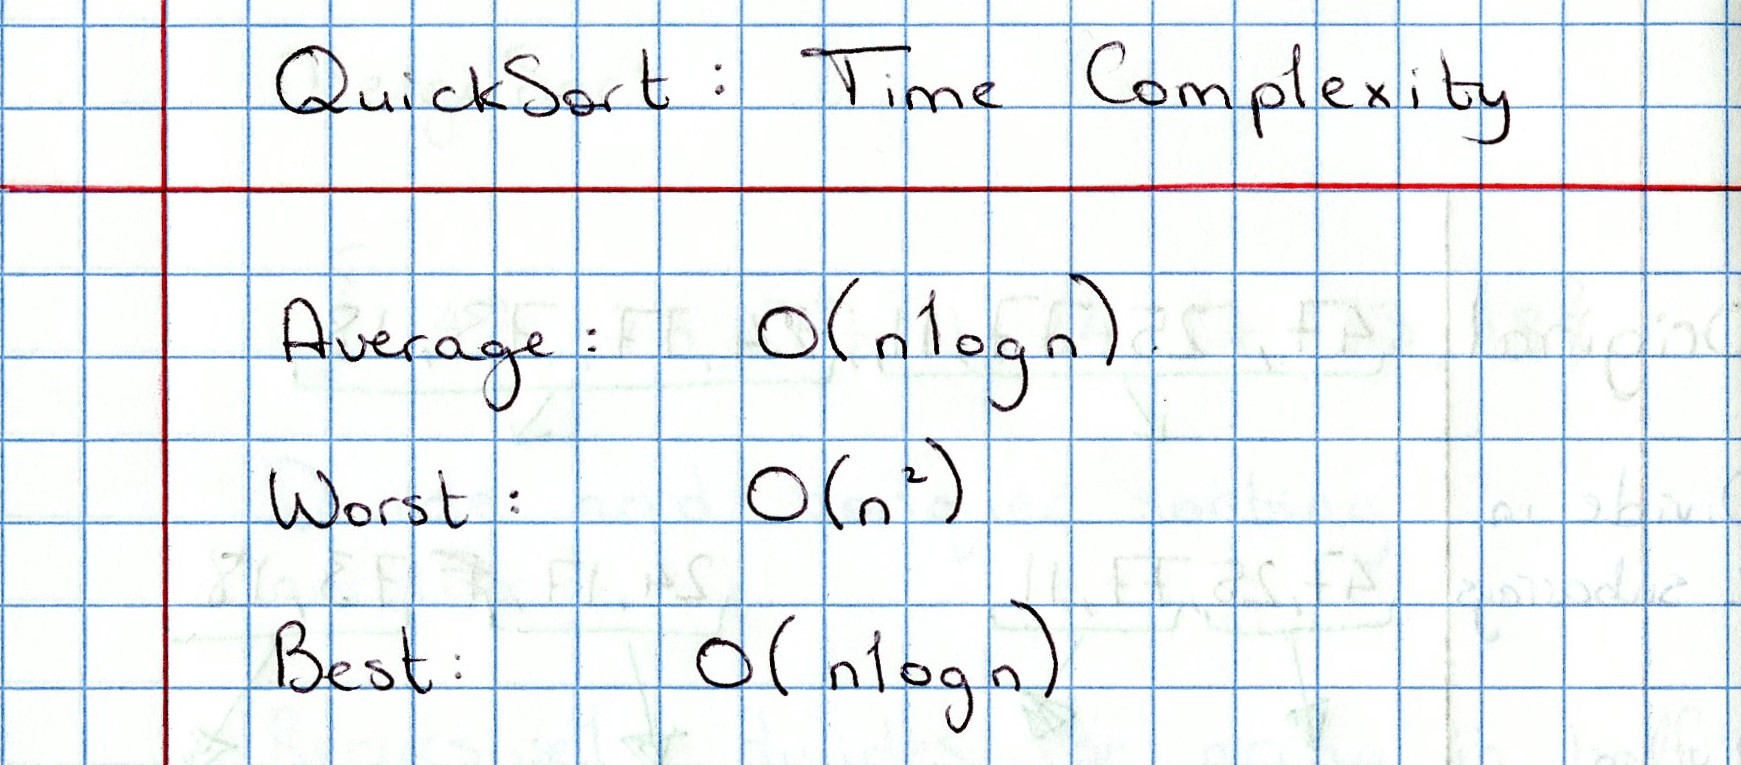 QuickSort: Time Complexity
Average: O(nlogn).
Worst: O(n²)
Best: O(nlogn)